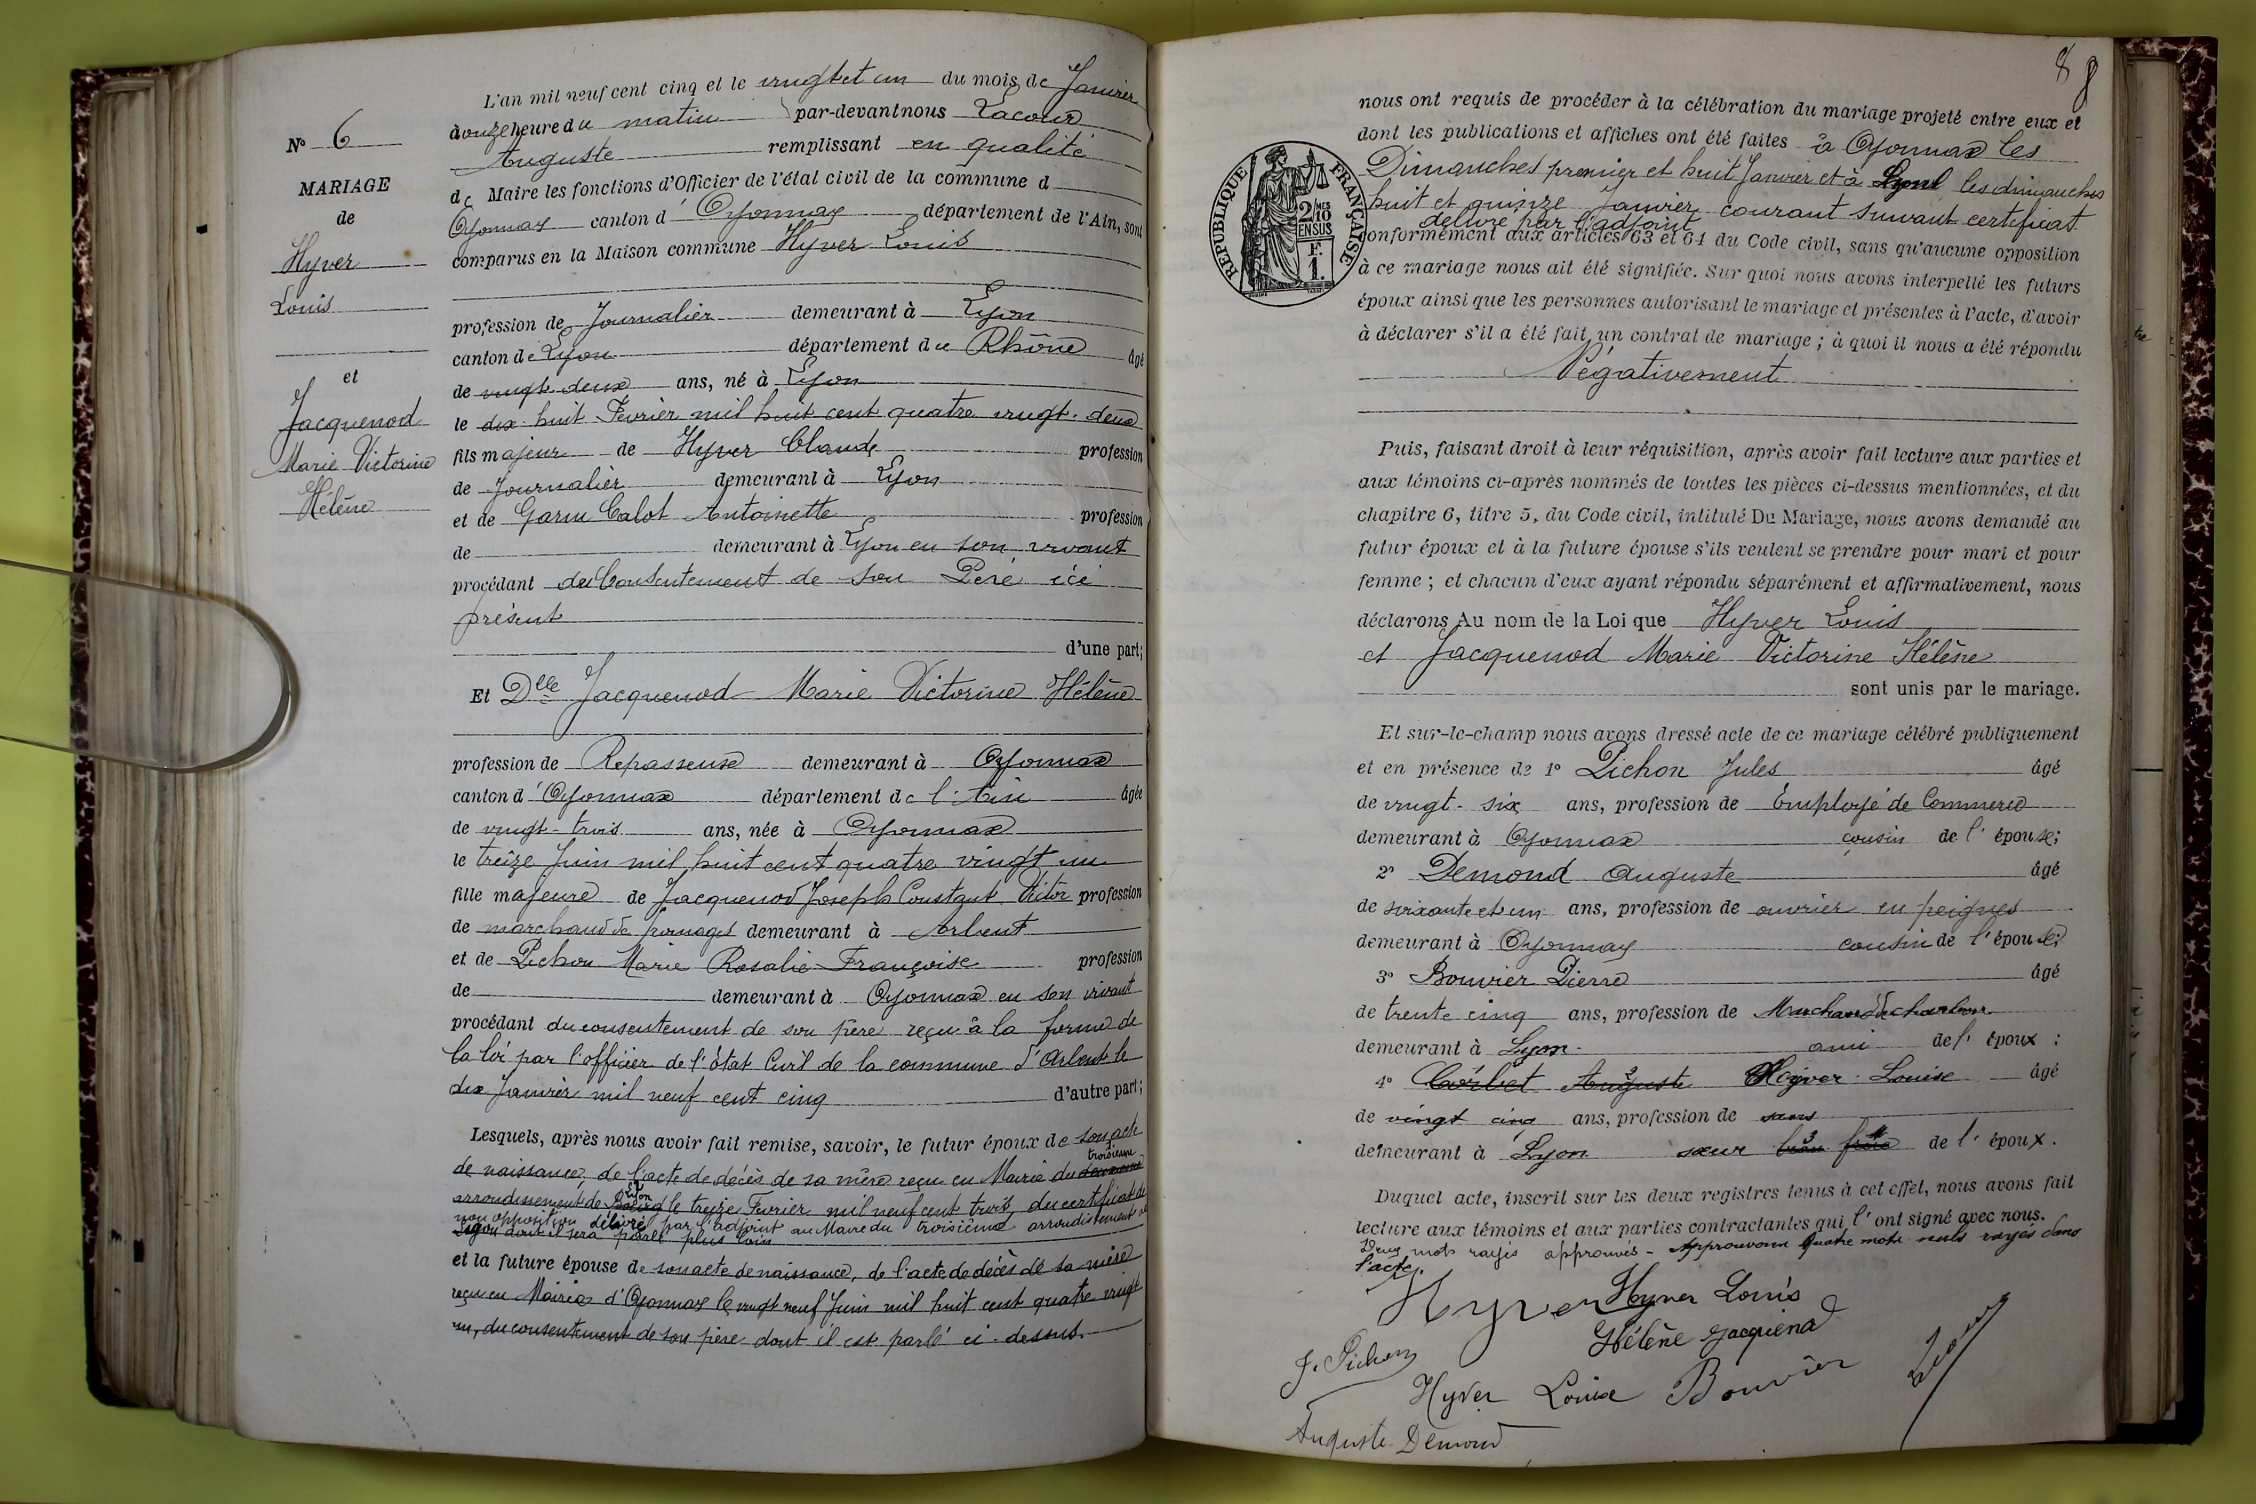 N° 6
MARIAGE
de
Hyver
Louis
et
Jacquenod
Marie Victorine
Hélène
L'an mil neuf cent cinq et le vingt et un du mois de Janvier
à onze heure du matin par-devant nous Lacour
Auguste remplissant en qualité
de Maire les fonctions d'Officier de l'état civil de la commune d
Oyonnax canton d' Oyonnax département de l'Ain, sont
comparus en la Maison commune Hyver Louis
profession de Journalier demeurant à Lyon
canton de Lyon département du Rhône âgé
de vingt deux ans, né à Lyon
le dix huit Fevrier mil huit cent quatre vingt-deux
fils majeur de Hyver Claude profession
de Journalier demeurant à Lyon
et de Garm Calot Antoinette profession
de demeurant à Lyon en son vivant
procédant du Consentement de son Père ici
présent
d'une part;
Et Dlle Jacquenod Marie Victorine Hélène
profession de Repasseuse demeurant à Oyonnax
canton d' Oyonnax département de l'Ain âgée
de vingt-trois ans, née à Oyonnax
le treize Juin mil huit cent quatre vingt un
fille majeure de Jacquenod Joseph Constant Victor profession
de marchand de fromages demeurant à Arbent
et de Pichon Marie Rosalie Françoise profession
de demeurant à Oyonnax en son vivant
procédant du consentement de son père reçu à la forme de
la loi par l'officier de l'état Civil de la commune d'Arbent le
dix Janvier mil neuf cent cinq d'autre part;
Lesquels, après nous avoir fait remise, savoir, le futur époux de son acte
troisième
de naissance, de l'acte de décès de sa mère reçu en Mairie du deuxième
Lyon
arrondissement de le treize Fevrier mil neuf cent trois, du certificat de
non opposition délivré par l'adjoint au Maire du troisième arrondissement de
Lyon dont il sera parlé plus loin
et la future épouse de son acte de naissance, de l'acte de décès de sa mère
reçu en Mairie d'Oyonnax le vingt neuf Juin mil huit cent quatre vingt
un, du consentement de son père dont il est parlé ci-dessus.
8 8
RÉPUBLIQUE FRANÇAISE
2/10 MES
EN SUS
F.
1.
nous ont requis de procéder à la célébration du mariage projeté entre eux et
dont les publications et affiches ont été faites à Oyonnax les
Dimanches premier et huit Janvier et à Lyon les dimanches
huit et quinze Janvier courant suivant certificat
délivré par l'adjoint
conformément aux articles 63 et 64 du Code civil, sans qu'aucune opposition
à ce mariage nous ait été signifiée. Sur quoi nous avons interpellé les futurs
époux ainsi que les personnes autorisant le mariage et présentes à l'acte, d'avoir
à déclarer s'il a été fait un contrat de mariage ; à quoi il nous a été répondu
Négativement
Puis, faisant droit à leur réquisition, après avoir fait lecture aux parties et
aux témoins ci-après nommés de toutes les pièces ci-dessus mentionnées, et du
chapitre 6, titre 5, du Code civil, intitulé Du Mariage, nous avons demandé au
futur époux et à la future épouse s'ils veulent se prendre pour mari et pour
femme ; et chacun d'eux ayant répondu séparément et affirmativement, nous
déclarons Au nom de la Loi que Hyver Louis
et Jacquenod Marie Victorine Hélène
sont unis par le mariage.
Et sur-le-champ nous avons dressé acte de ce mariage célébré publiquement
et en présence de 1° Pichon Jules âgé
de vingt-six ans, profession de Employé de Commerce
demeurant à Oyonnax cousin de l'épouse;
2° Demond Auguste âgé
de soixante et un ans, profession de ouvrier en peignes
demeurant à Oyonnax cousin de l'épouse;
3° Bouvier Pierre âgé
de trente cinq ans, profession de Marchand de charbons
demeurant à Lyon ami de l'époux ;
4° Auguste Hyver Louise âgé
de vingt cinq ans, profession de sans
demeurant à Lyon sœur frère de l'époux.
Duquel acte, inscrit sur les deux registres tenus à cet effet, nous avons fait
lecture aux témoins et aux parties contractantes qui l'ont signé avec nous.
Deux mots rayés approuvés - Approuvons Quatre mots nuls rayés dans
l'acte.
Hyver Hyver Louis
Hélène Jacquenod
J. Pichon
Hyver Louise Bouvier Lacour
Auguste Demond